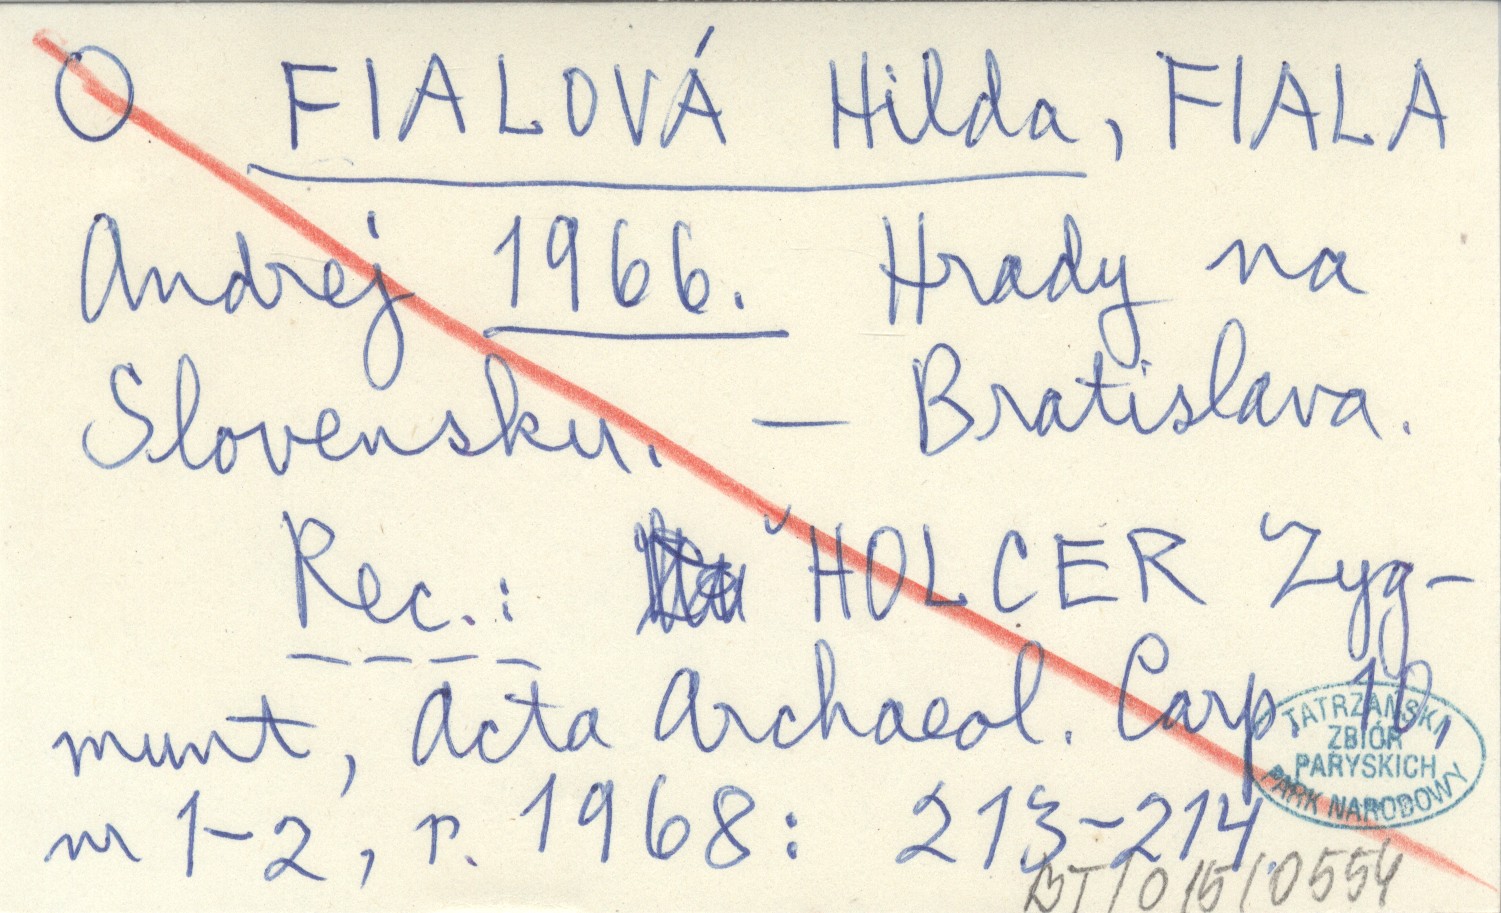 O FIALOVÁ Hilda, FIALA
Andrej 1966. Hrady na
Slovensku. — Bratislava.
Rec.: HOLCER Zyg-
munt, Acta Archaeol. Carp. 10,
nr 1-2, r. 1968: 213-214.
TATRZAŃSKI
ZBIÓR
PARYSKICH
PARK NARODOWY
BT/015/0554